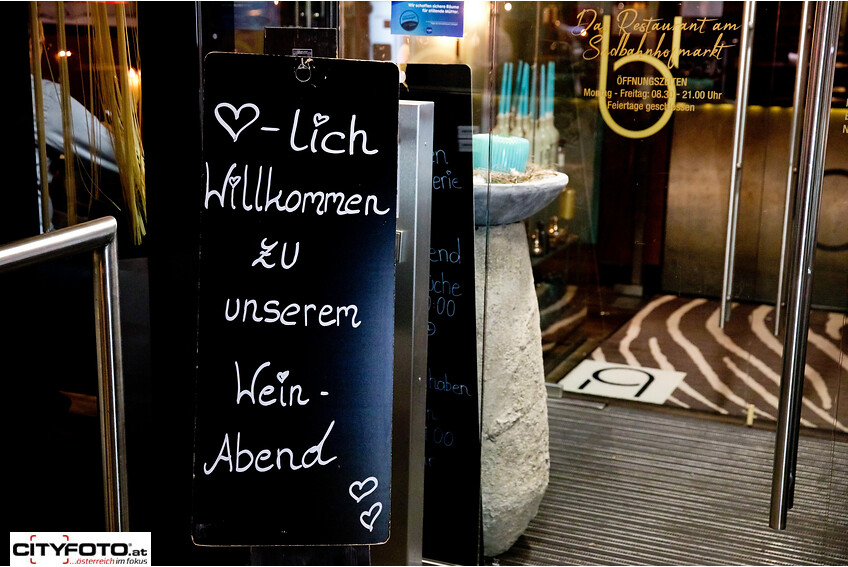 ♡-lich
Willkommen
zu
unserem
Wein-
Abend
Wir schaffen sichere Räume
für stillende Mütter.
Das Restaurant am
Südbahnhofmarkt
b
ÖFFNUNGSZEITEN
Montag - Freitag: 08.30 - 21.00 Uhr
Feiertage geschlossen
en
erie
end
uche
0:00
haben
00
b
CITYFOTO.at
...österreich im fokus